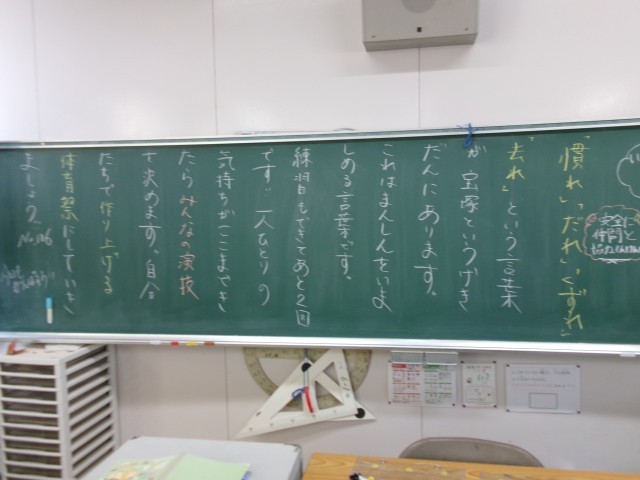 「慣れ」「だれ」「くずれ」
「去れ」という言葉
が宝塚というげき
だんにあります。
これはまんしんをいま
しめる言葉です。
練習もできてあと2回
です!!一人ひとりの
気持ちがここまでき
たらみんなの演技
を決めます。自分
たちで作り上げる
体育祭にしていき
ましょう。No.106
安全に
仲間と